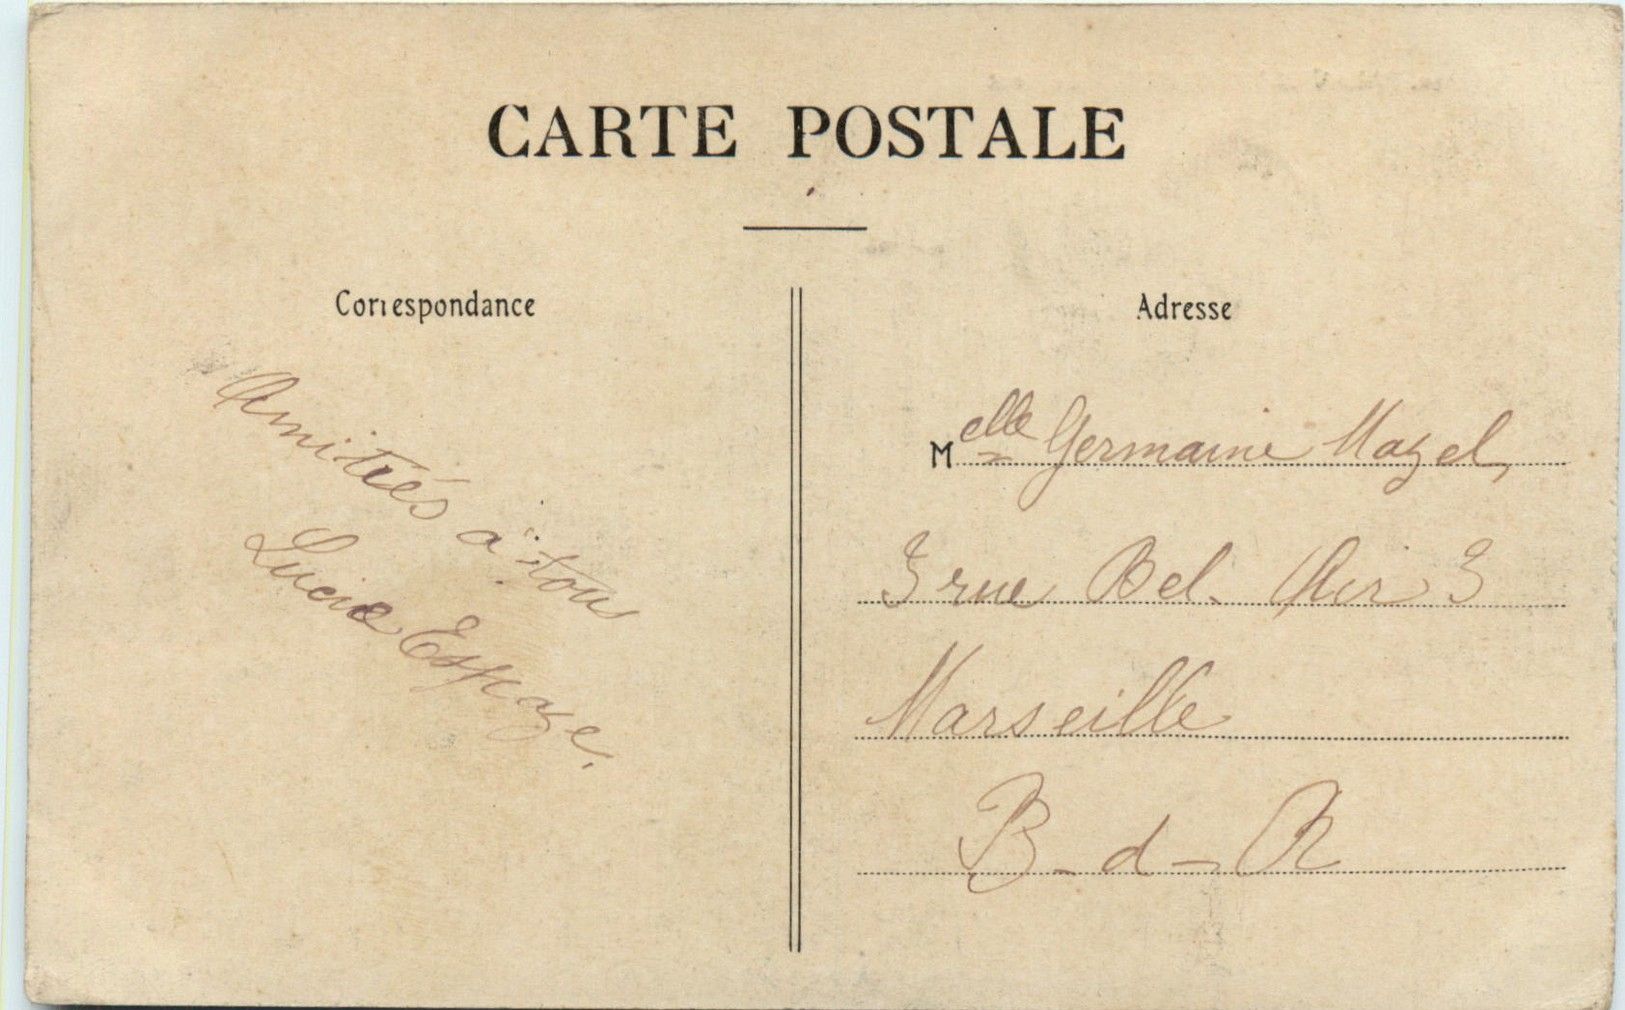 CARTE POSTALE
Correspondance
Amitiés à tous
Lucie Espaze.
Adresse
Melle Germaine Mazel,
3 rue Bel-Air 3
Marseille
B-d-R